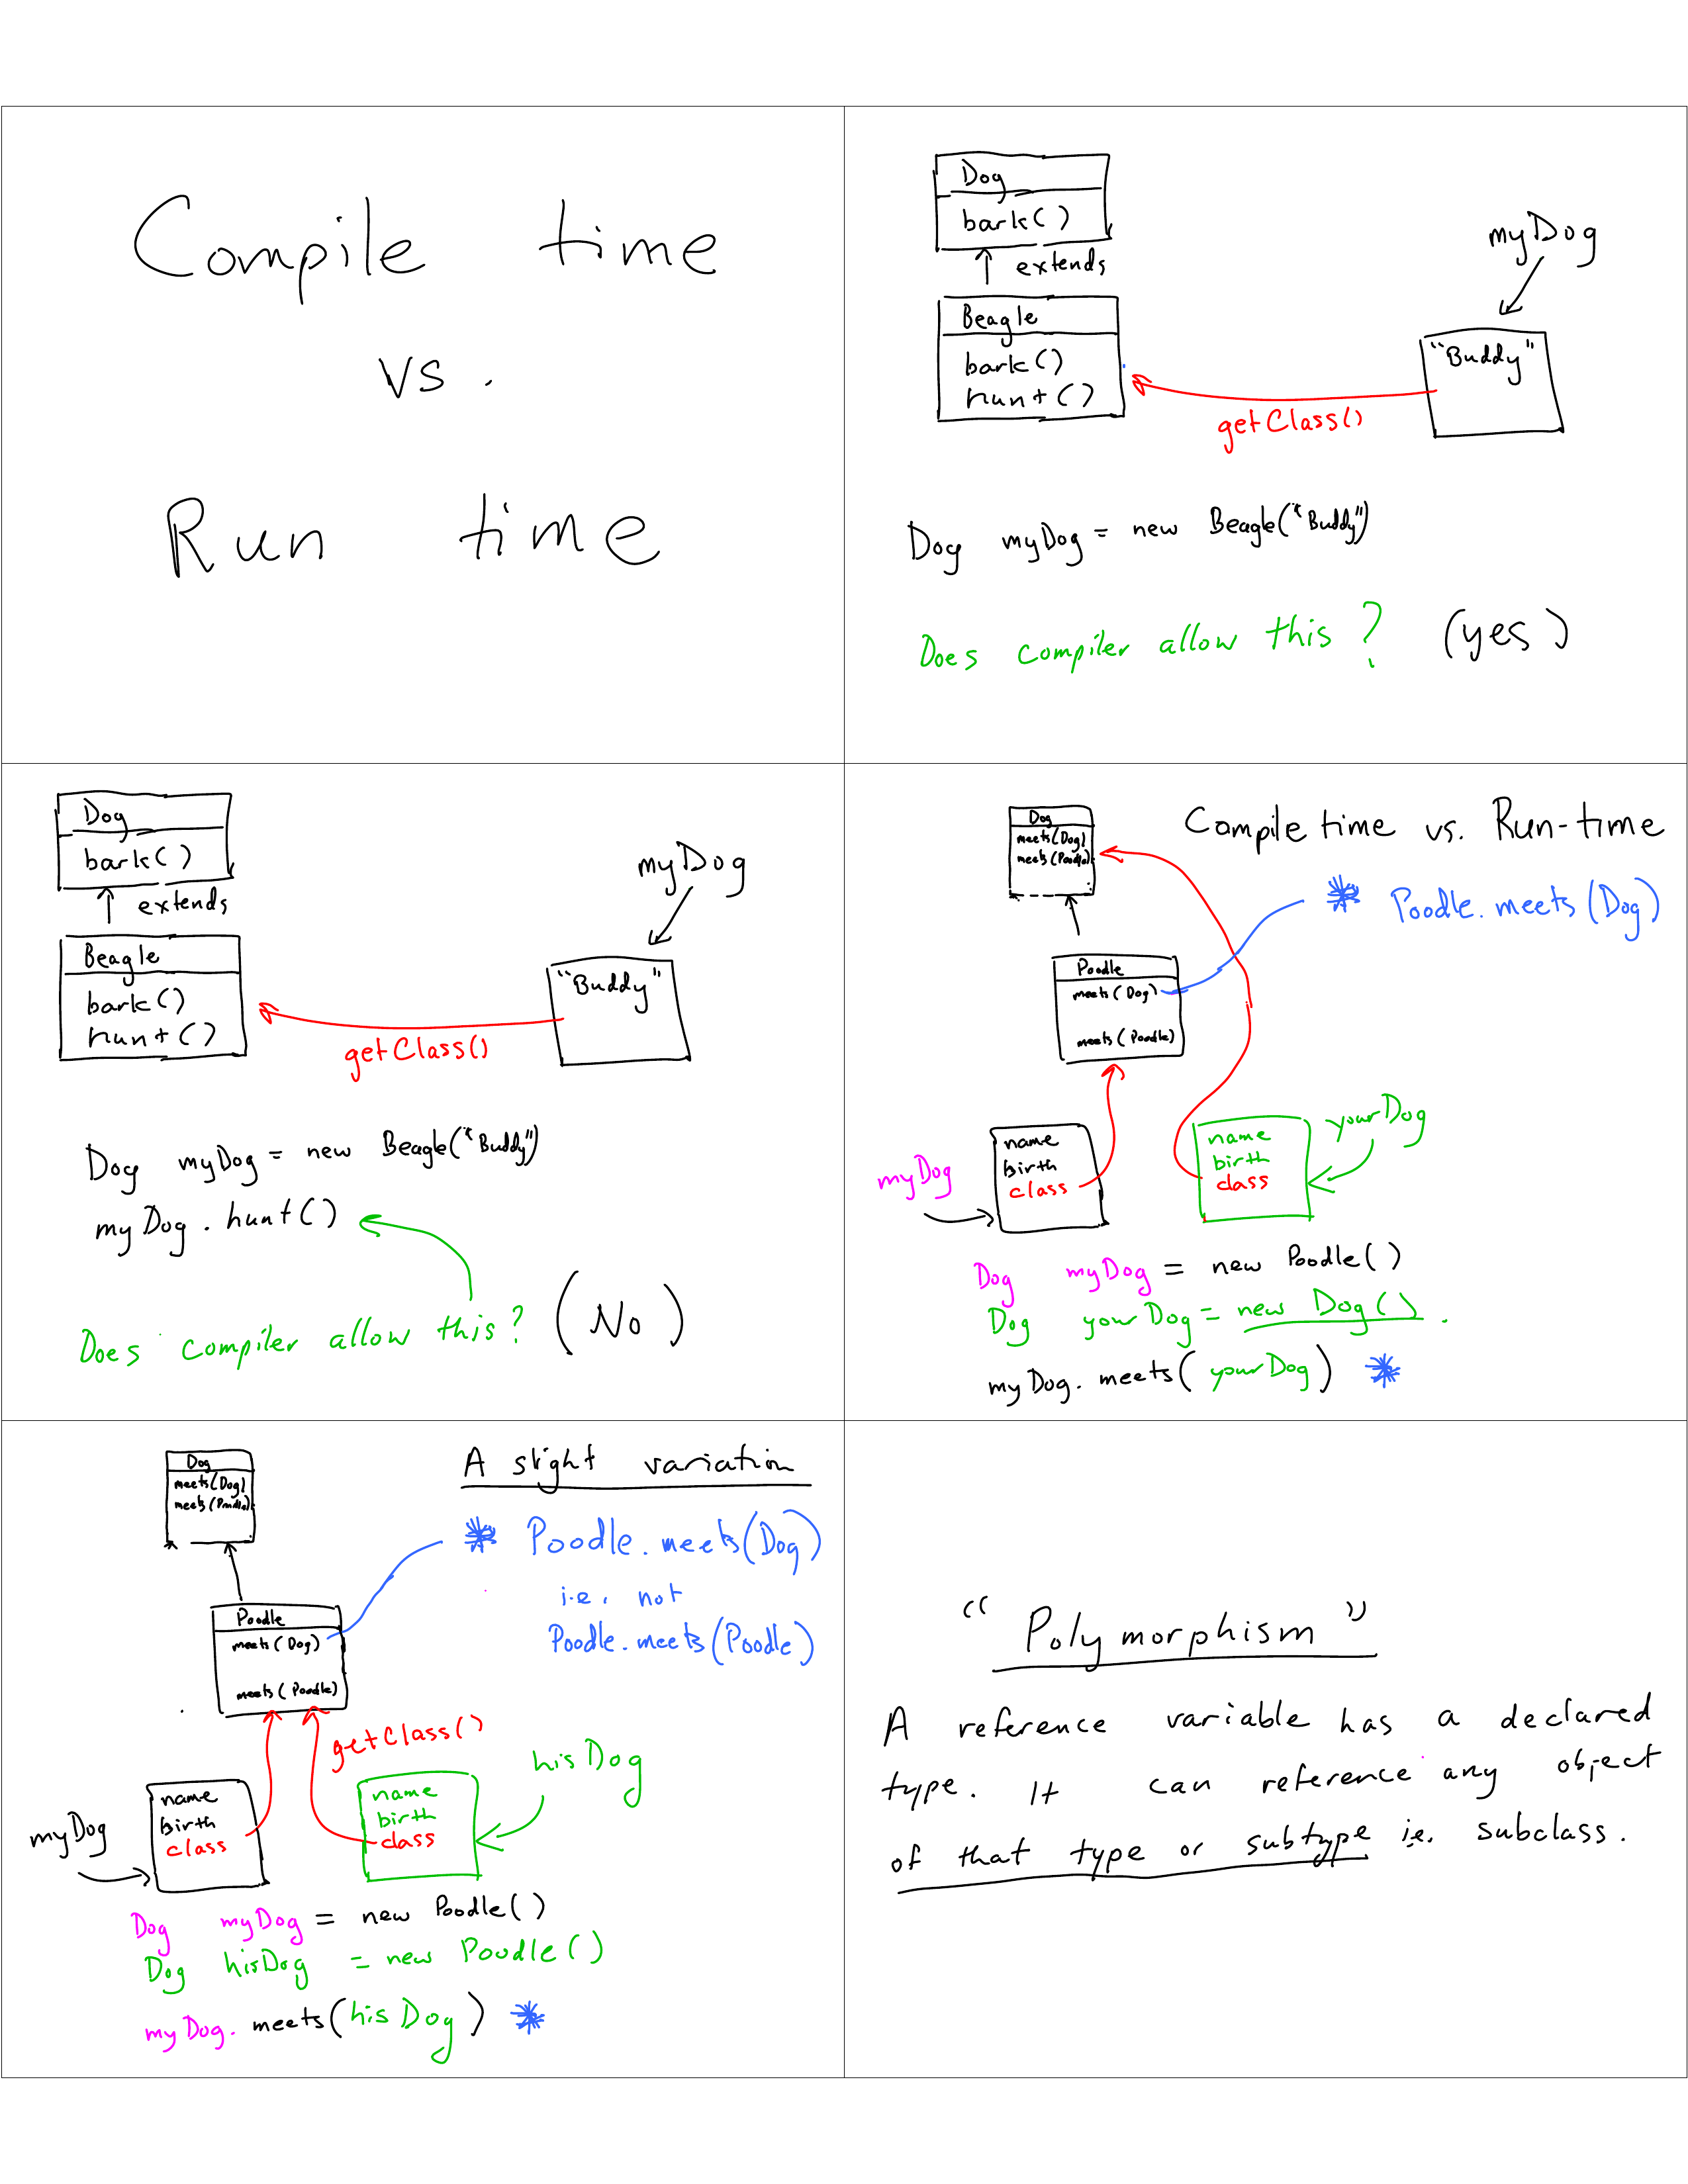 Compile time
vs.
Run time
Dog
bark()
extends
Beagle
bark()
hunt()
myDog
"Buddy"
getClass()
Dog myDog = new Beagle("Buddy")
Does compiler allow this? (yes)
Dog
bark()
extends
Beagle
bark()
hunt()
myDog
"Buddy"
getClass()
Dog myDog = new Beagle("Buddy")
myDog.hunt()
Does compiler allow this? (No)
Compile time vs. Run-time
Dog
meets(Dog)
meets(Poodle)
* Poodle.meets(Dog)
Poodle
meets(Dog)
meets(Poodle)
myDog
name
birth
class
yourDog
name
birth
class
Dog myDog = new Poodle()
Dog yourDog = new Dog().
myDog.meets(yourDog) *
A slight variation
Dog
meets(Dog)
meets(Poodle)
* Poodle.meets(Dog)
i.e. not
Poodle.meets(Poodle)
Poodle
meets(Dog)
meets(Poodle)
getClass()
myDog
name
birth
class
hisDog
name
birth
class
Dog myDog = new Poodle()
Dog hisDog = new Poodle()
myDog.meets(hisDog) *
"Polymorphism"
A reference variable has a declared
type. It can reference any object
of that type or subtype i.e. subclass.